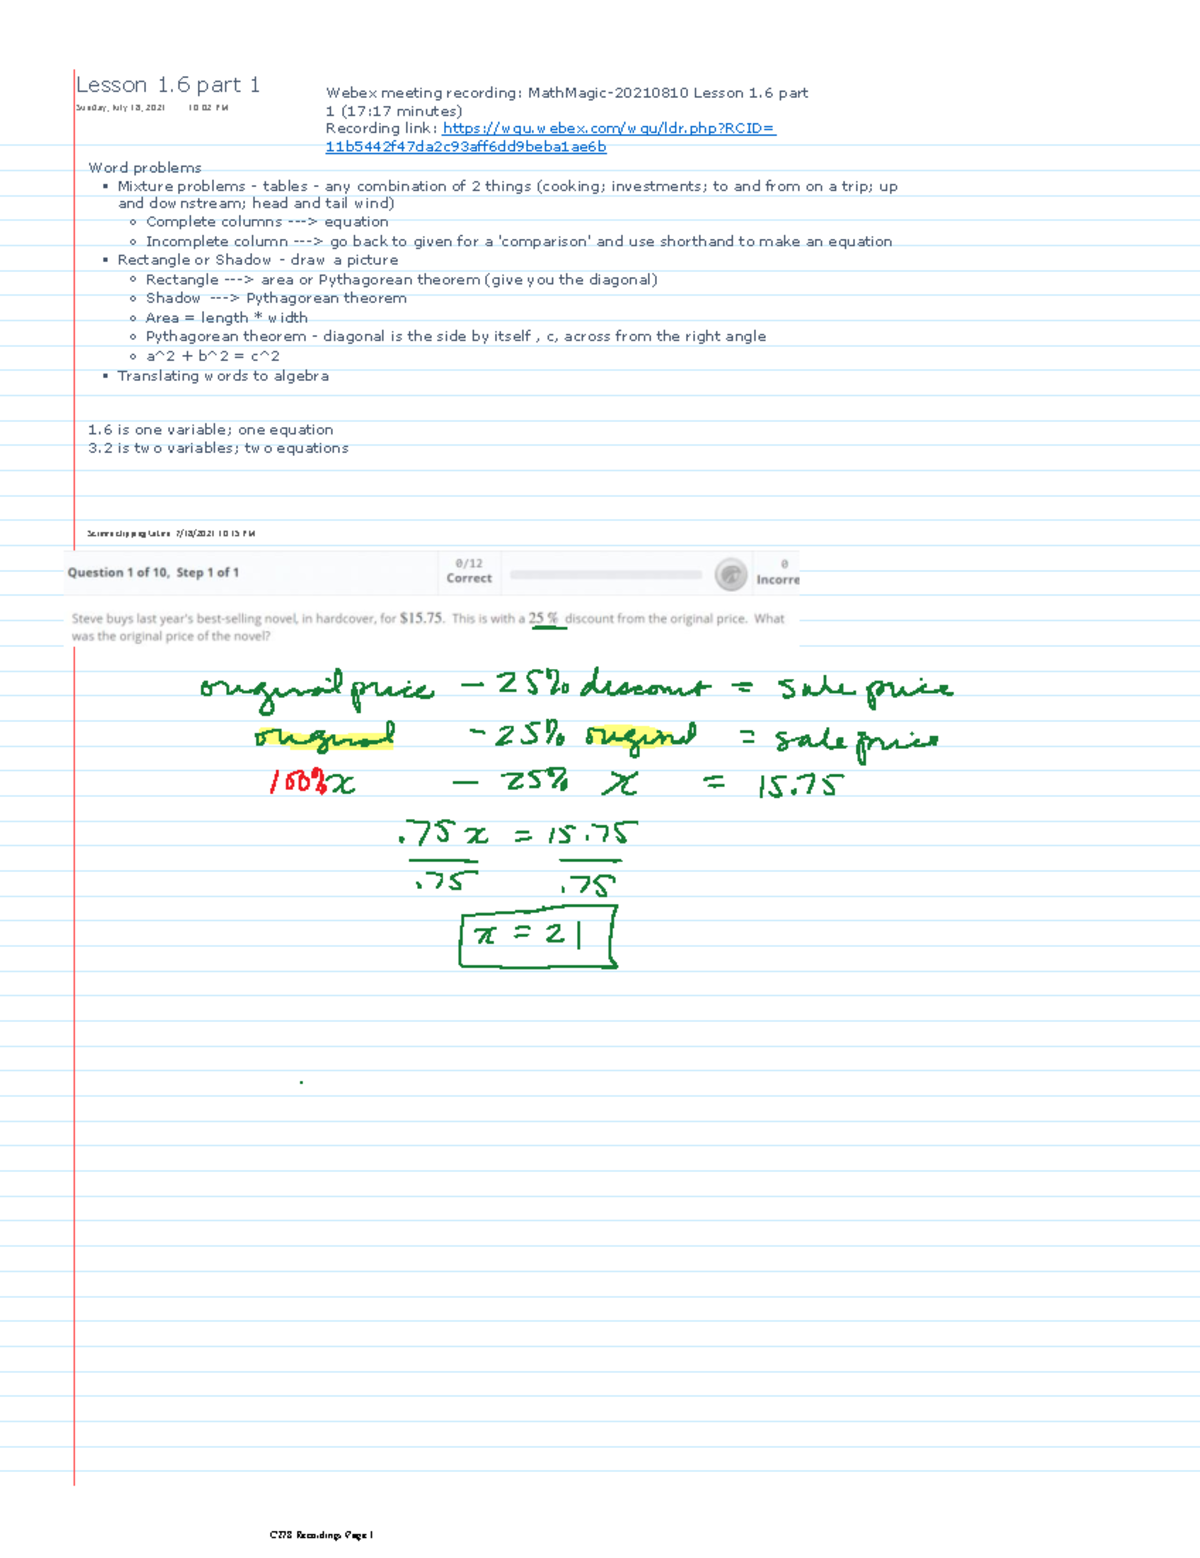 Lesson 1.6 part 1
Sunday, July 18, 2021 10:02 PM
Webex meeting recording: MathMagic-20210810 Lesson 1.6 part
1 (17:17 minutes)
Recording link: https://wgu.webex.com/wgu/ldr.php?RCID=
11b5442f47da2c93aff6dd9beba1ae6b
Word problems
▪ Mixture problems - tables - any combination of 2 things (cooking; investments; to and from on a trip; up
and downstream; head and tail wind)
○ Complete columns ---> equation
○ Incomplete column ---> go back to given for a 'comparison' and use shorthand to make an equation
▪ Rectangle or Shadow - draw a picture
○ Rectangle ---> area or Pythagorean theorem (give you the diagonal)
○ Shadow ---> Pythagorean theorem
○ Area = length * width
○ Pythagorean theorem - diagonal is the side by itself , c, across from the right angle
○ a^2 + b^2 = c^2
▪ Translating words to algebra
1.6 is one variable; one equation
3.2 is two variables; two equations
Screen clipping taken: 7/18/2021 10:15 PM
Question 1 of 10, Step 1 of 1
0/12
Correct
0
Incorre
Steve buys last year's best-selling novel, in hardcover, for $15.75. This is with a 25 % discount from the original price. What
was the original price of the novel?
original price - 25% discount = sale price
original - 25% original = sale price
100%x - 25% x = 15.75
.75x = 15.75
.75 .75
x = 21
C278 Recordings Page 1